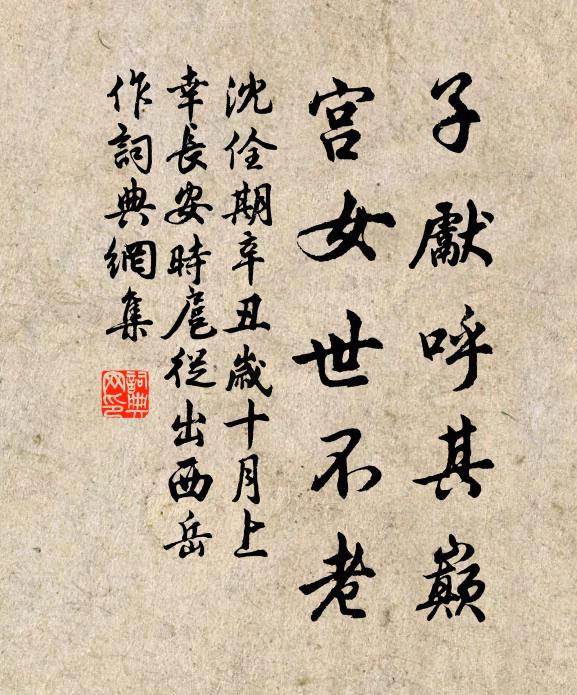 子獻呼其巔
宮女世不老
沈佺期辛丑歲十月上
幸長安時扈從出西岳
作詞典網集
詞典
网印